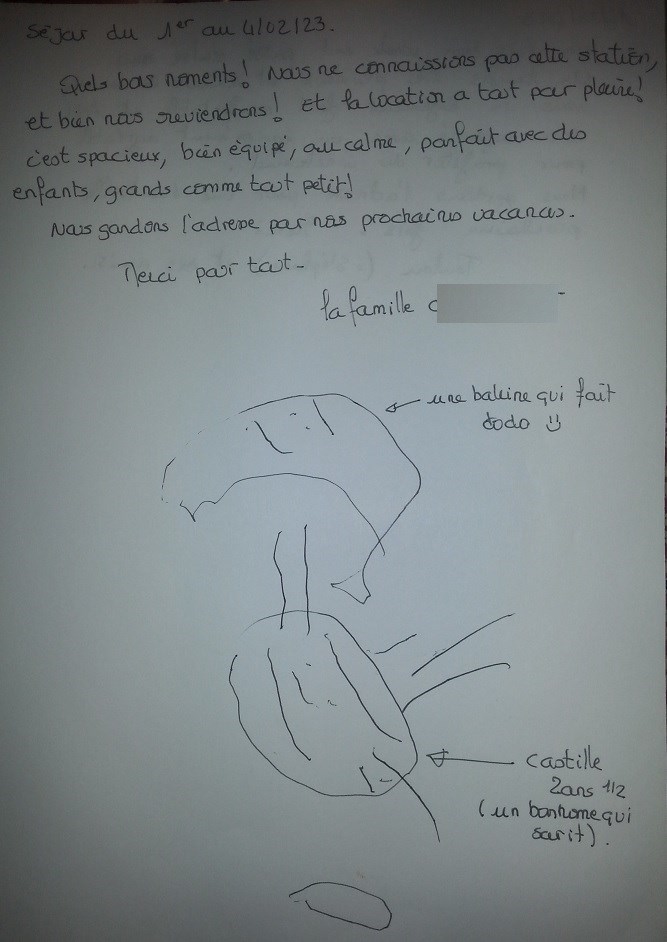 Séjour du 1er au 4/02/23.
Quels bons moments! Nous ne connaissions pas cette station,
et bien nous reviendrons! Et la location a tout pour plaire!
c'est spacieux, bien équipé, au calme, parfait avec des
enfants, grands comme tout petit!
Nous gardons l'adresse pour nos prochaines vacances.
Merci pour tout -
la famille
une baleine qui fait
dodo
Castille
2ans 1/2
(un bonhome qui
sourit).